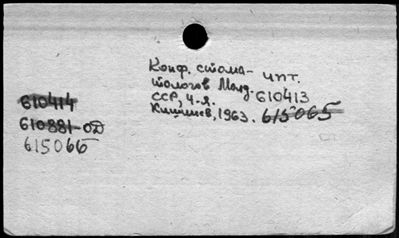 Конф. стома- чпт.
тологов Молд. 610413
ССР, 4-я.
Кишинев, 1963. 615065
610414
610881-ОД
615066